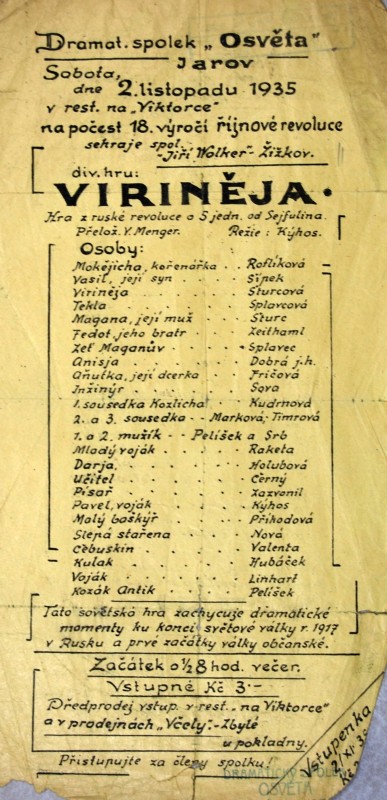 Dramat. spolek „Osvěta"
Jarov
Sobota,
dne 2. listopadu 1935
v rest. na „Viktorce"
na počest 18. výročí říjnové revoluce
sehraje spol.
-Jiří Wolker- Žižkov.
div. hru:
VIRINĚJA.
Hra z ruské revoluce o 5 jedn. od Sejfulina.
Přelož. V. Menger. Režie: Kýhos.
Osoby:
Mokějicha, kořenářka . . Roflíková
Vasil, její syn . . Šípek
Viriněja . . Šturcová
Tekla . . Splavcová
Magana, její muž . . Šturc
Fedot, jeho bratr . . Zeithaml
Zeť Maganův . . Splavec
Anisja . . Dobrá j.h.
Aňutka, její dcerka . . Fričová
Inžinýr . . Sova
1. sousedka Kozlicha . . Kudrnová
2. a 3. sousedka - - Marková, Timrová
1. a 2. mužík - - Pelíšek a Srb
Mladý voják . . Raketa
Darja . . Holubová
Učitel . . Černý
Písař . . Zazvonil
Pavel, voják . . Kýhos
Malý baškýř . . Příhodová
Slepá stařena . . Nová
Cěbuskin . . Valenta
Kulak . . Hubáček
Voják . . Linhart
Kozák Antik . . Pelíšek
Tato sovětská hra zachycuje dramatické
momenty ku konci světové války r. 1917
v Rusku a prvé začátky války občanské.
Začátek o ½8 hod. večer.
Vstupné Kč 3·-
Předprodej vstup. v rest. „na Viktorce"
a v prodejnách „Včely". - Zbylé
u pokladny.
Přistupujte za členy spolku!
Vstupenka
2/XI. 35
Kč 3
DRAMATICKÝ SPOLEK
OSVĚTA